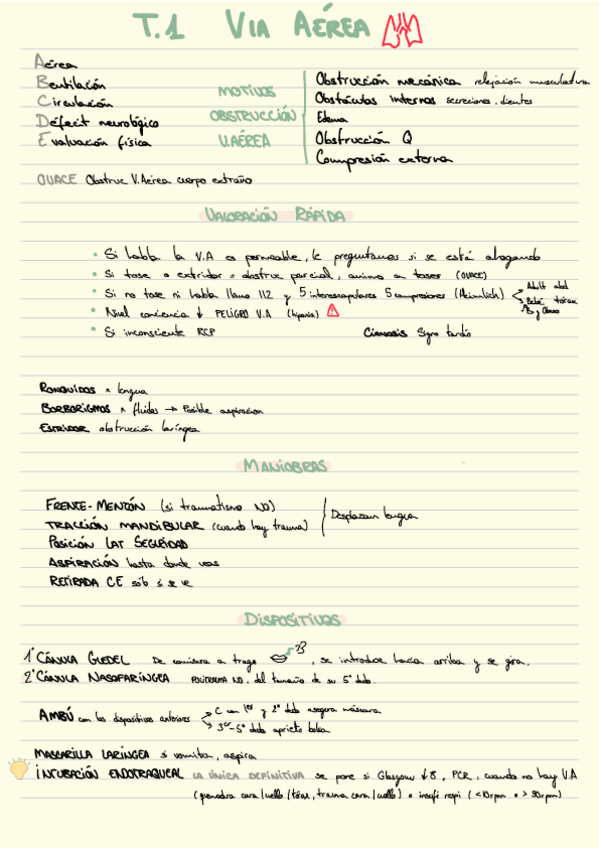 T.1 VIA AÉREA
Aérea
Bentilación
Circulación
Déficit neurológico
Evaluación física
MOTIVOS
OBSTRUCCIÓN
V.AÉREA
Obstrucción mecánica relajación musculatura
Obstáculos internos secreciones, dientes
Edema
Obstrucción Q
Compresión externa
OVACE Obstruc V.Aérea cuerpo extraño
VALORACIÓN RÁPIDA
• Si habla la V.A es permeable, le preguntamos si se está ahogando
• Si tose o estridor = obstruc parcial, animo a toser (OVACE)
• Si no tose ni habla llamo 112 y 5 interescapulares 5 compresiones (Heimlich)
Adult abd
Bebé tórax
y Obeso
• Nivel conciencia ↓ PELIGRO V.A (hipoxia)
• Si inconsciente RCP
Cianosis Signo tardío
RONQUIDOS × lengua
BORBORIGMOS × fluidos → Posible aspiracion
ESTRIDOR obstrucción laríngea
MANIOBRAS
FRENTE-MENTÓN (si traumatismo NO)
TRACCIÓN MANDIBULAR (cuando hay trauma)
Desplazan lengua
POSICIÓN LAT SEGURIDAD
ASPIRACIÓN hasta donde veas
RETIRADA CE sólo si se ve
DISPOSITIVOS
1º CÁNULA GUEDEL De comisura a trago, se introduce hacia arriba y se gira.
2º CÁNULA NASOFARÍNGEA POLITRAUMA NO, del tamaño de su 5º dedo.
AMBÚ con los dispositivos anteriores
C con 1º y 2º dedo asegura máscara
3º-5º dedo aprieto bolsa
MASCARILLA LARÍNGEA si vomita, aspira
INCUBACIÓN ENDOTRAQUEAL LA ÚNICA DEFINITIVA se pone si Glasgow ↓8, PCR, cuando no hay V.A
(quemadura cara/cuello/tórax, trauma cara/cuello) o insufi respi (<10rpm o >30rpm)